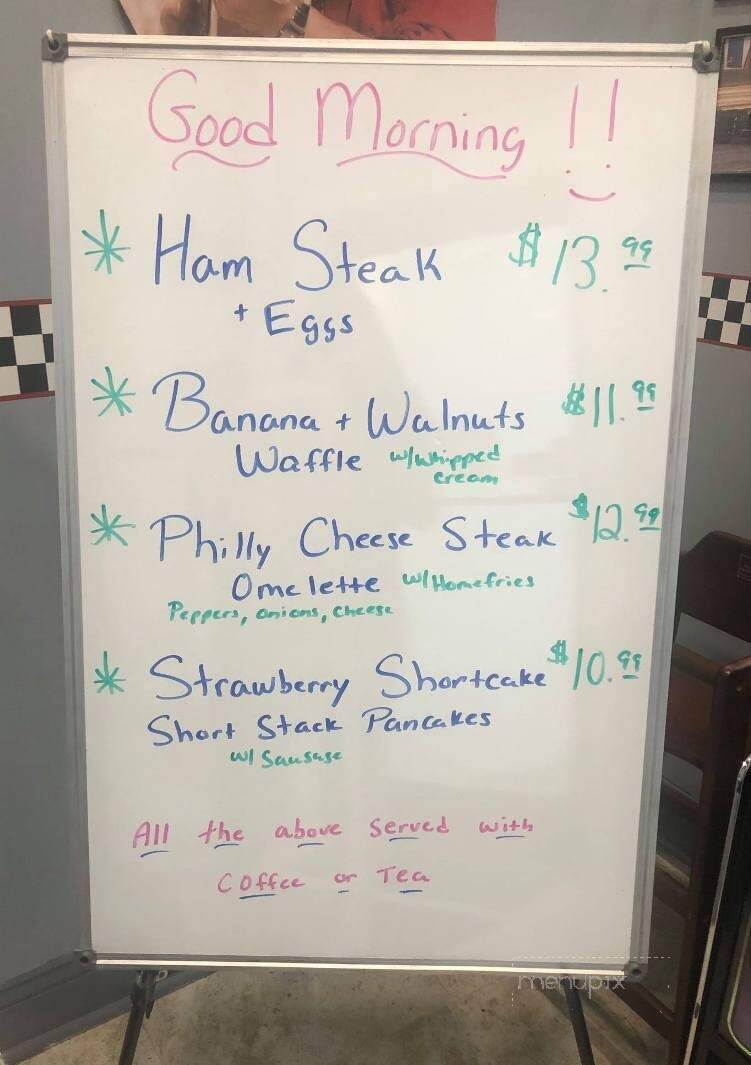 Good Morning !!
* Ham Steak $13.99
+ Eggs
* Banana + Walnuts $11.99
Waffle w/whipped cream
* Philly Cheese Steak $12.99
Omelette w/Homefries
Peppers, onions, cheese
* Strawberry Shortcake $10.99
Short Stack Pancakes
w/ Sausage
All the above served with
Coffee or Tea
menupix